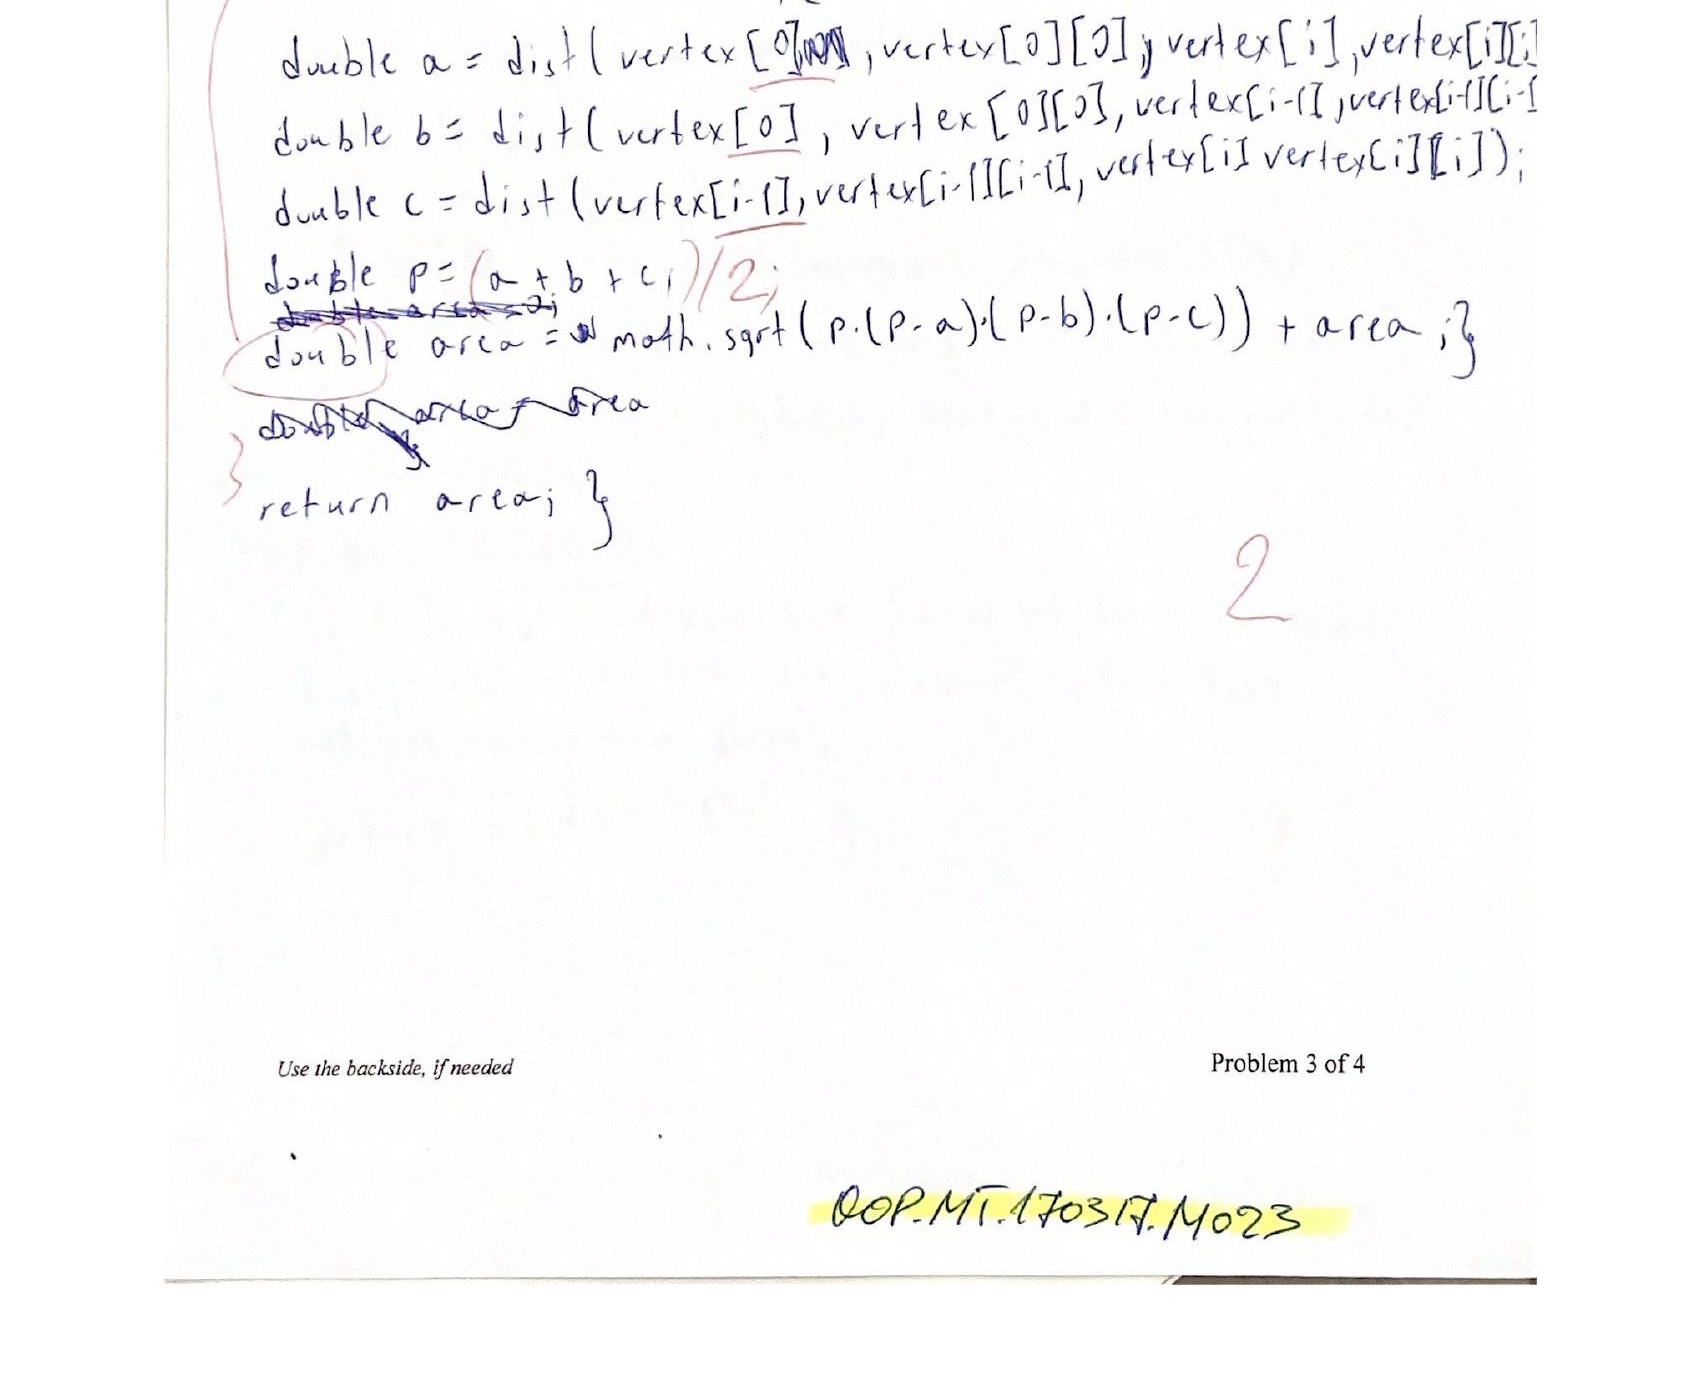 double a = dist( vertex[0] , vertex[0][0], vertex[i], vertex[i][i]
double b = dist( vertex[0] , vertex[0][0], vertex[i-1], vertex[i-1][i-1
double c = dist (vertex[i-1], vertex[i-1][i-1], vertex[i] vertex[i][i]);
double p = (a + b + c;)/2;
double area = math.sqrt( p.(p-a).(p-b).(p-c)) + area ;}
area
}
return area; }
2
Use the backside, if needed
Problem 3 of 4
OOP.MT.170317.M023